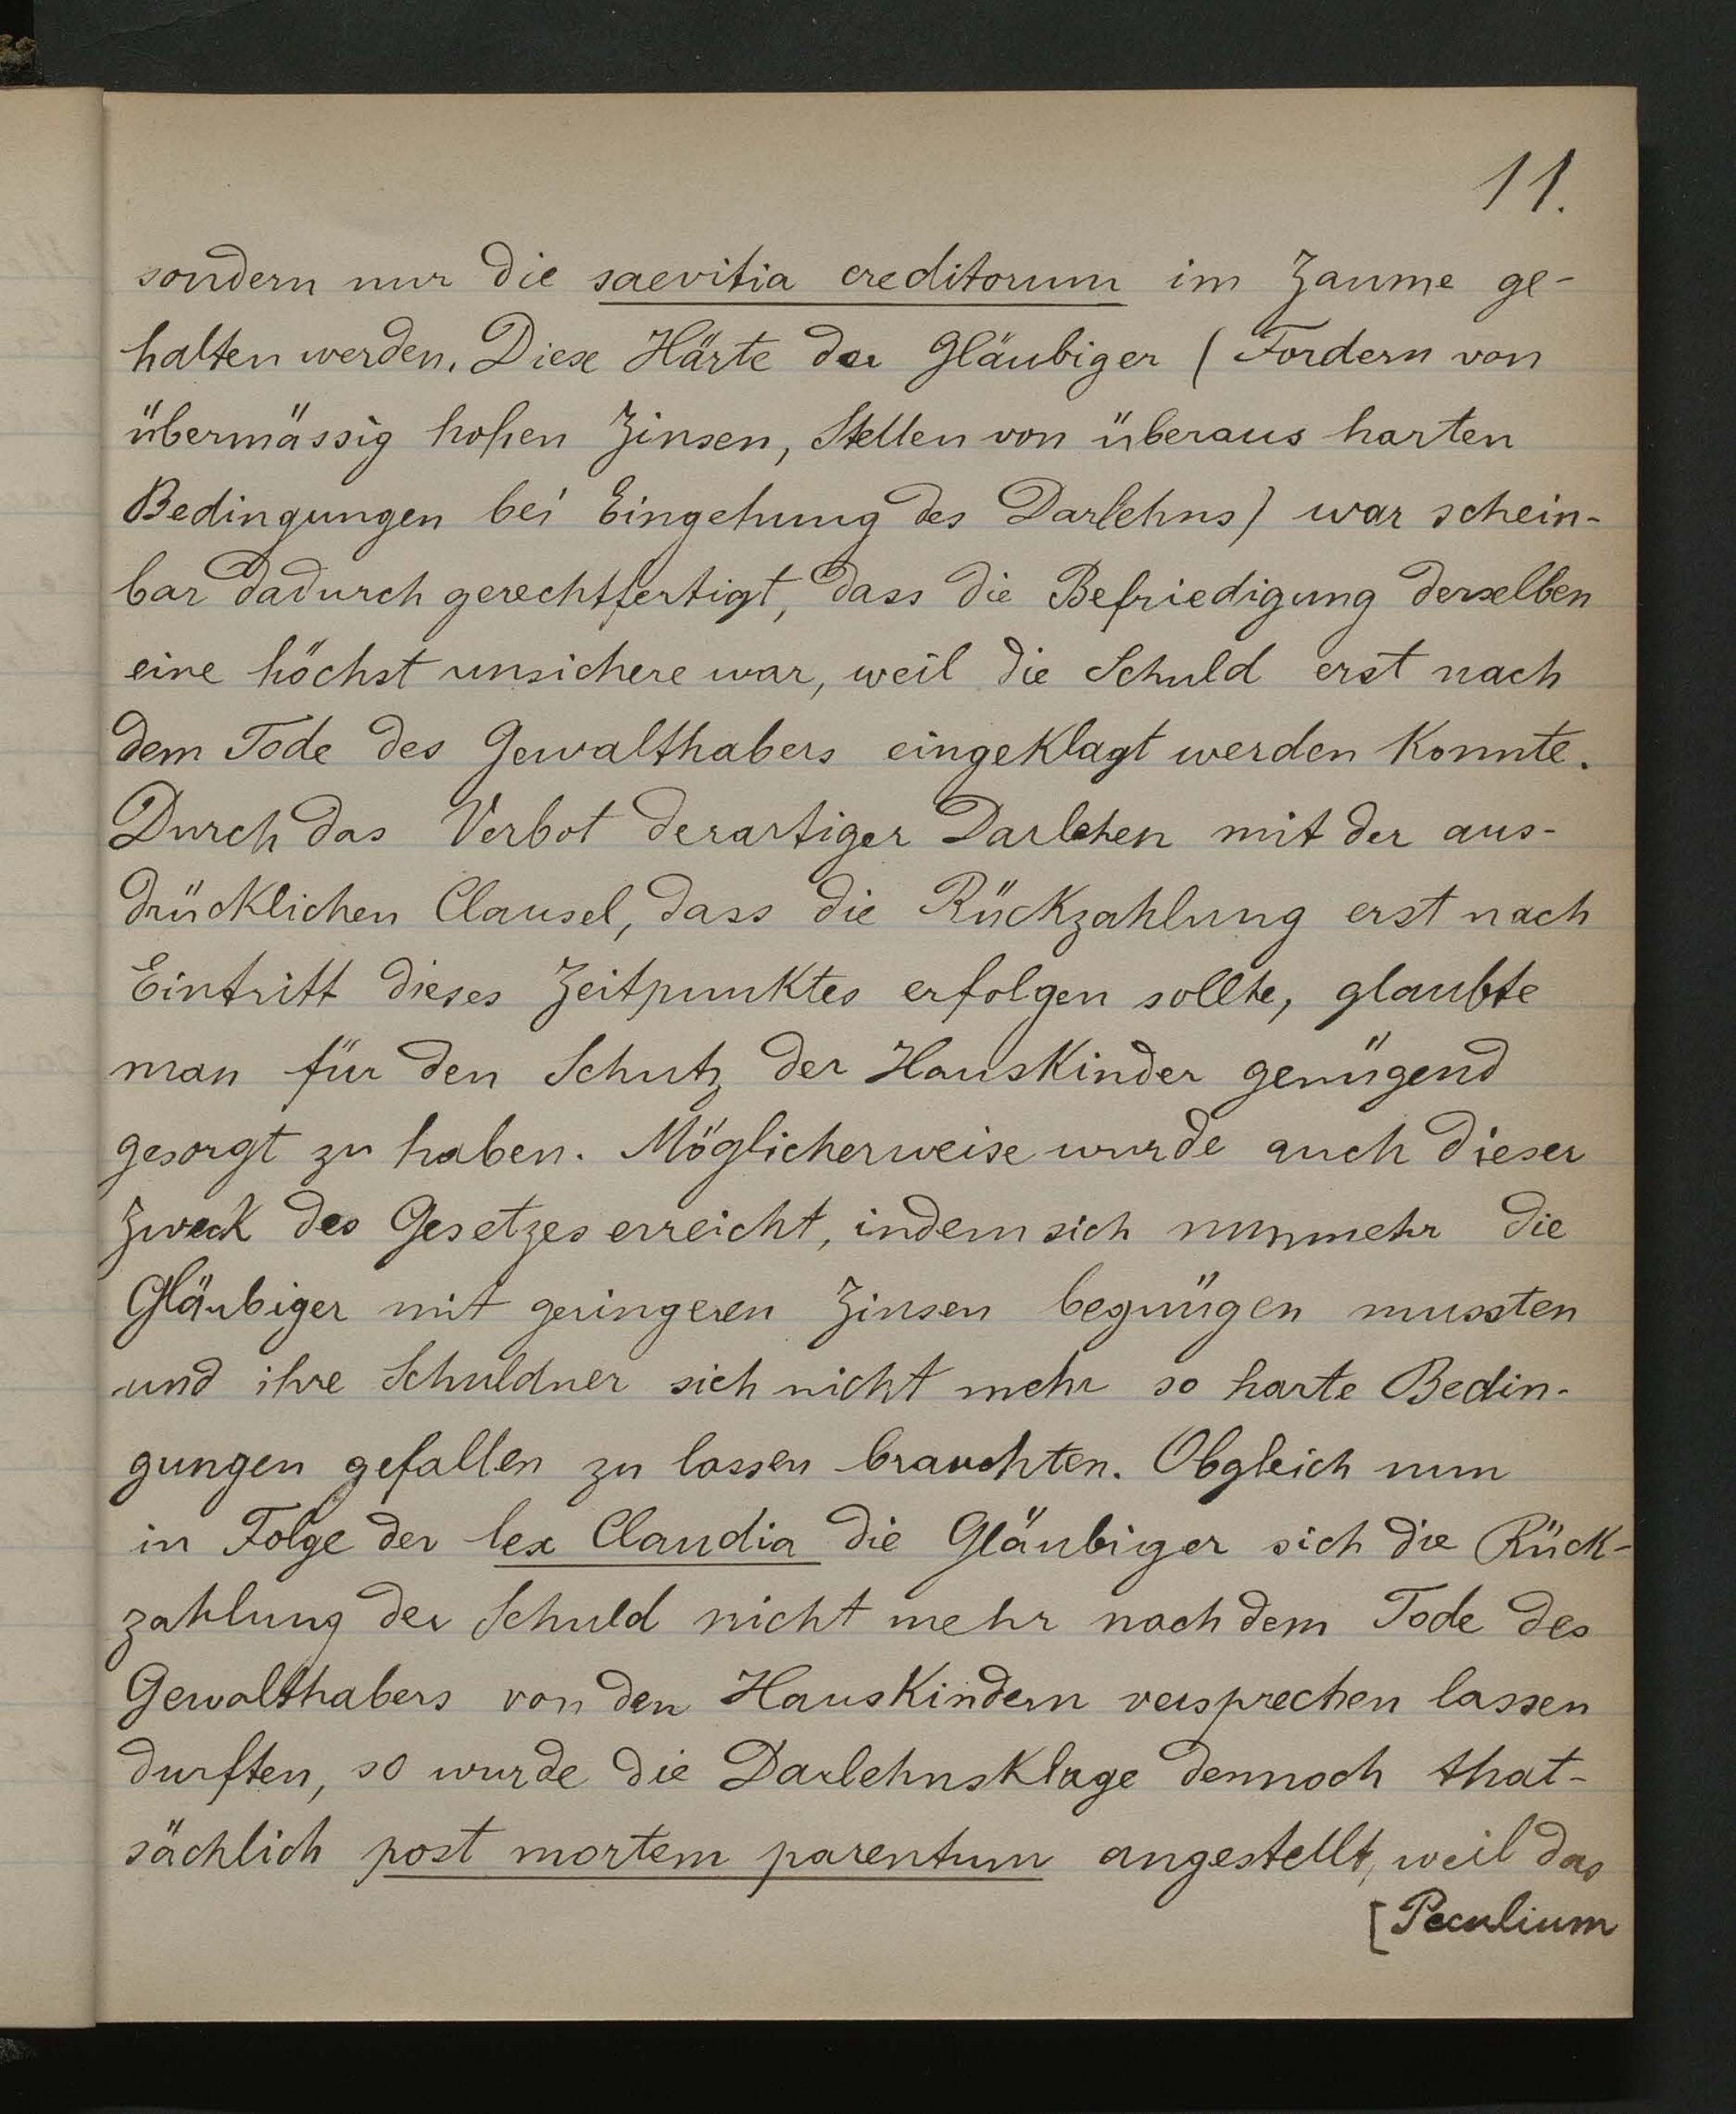 11.
sondern nur die saevitia creditorum im Zaume ge-
halten werden. Diese Härte der Gläubiger (Fordern von
übermässig hohen Zinsen, Stellen von überaus harten
Bedingungen bei Eingehung des Darlehns) war schein-
bar dadurch gerechtfertigt, dass die Befriedigung derselben
eine höchst unsichere war, weil die Schuld erst nach
dem Tode des Gewalthabers eingeklagt werden konnte.
Durch das Verbot derartiger Darlehen mit der aus-
drücklichen Clausel, dass die Rückzahlung erst nach
Eintritt dieses Zeitpunktes erfolgen sollte, glaubte
man für den Schutz der Hauskinder genügend
gesorgt zu haben. Möglicherweise wurde auch dieser
Zweck des Gesetzes erreicht, indem sich nunmehr die
Gläubiger mit geringeren Zinsen begnügen mussten
und ihre Schuldner sich nicht mehr so harte Bedin-
gungen gefallen zu lassen brauchten. Obgleich nun
in Folge der lex Claudia die Gläubiger sich die Rück-
zahlung der Schuld nicht mehr nach dem Tode des
Gewalthabers von den Hauskindern versprechen lassen
durften, so wurde die Darlehnsklage dennoch that-
sächlich post mortem parentum angestellt, weil das
[Peculium